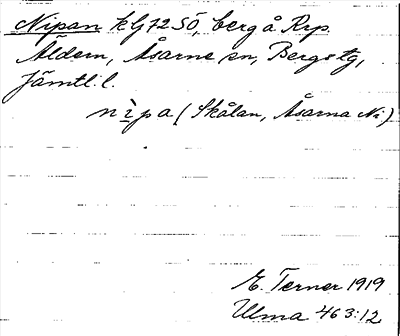 Nipan kG7250, berg å Krp.
Åldern, Åsarne sn, Bergs tg,
Jämtl. l.
nìpa (Skålan, Åsarna Ni)
E. Terner 1919
Ulma 463:12